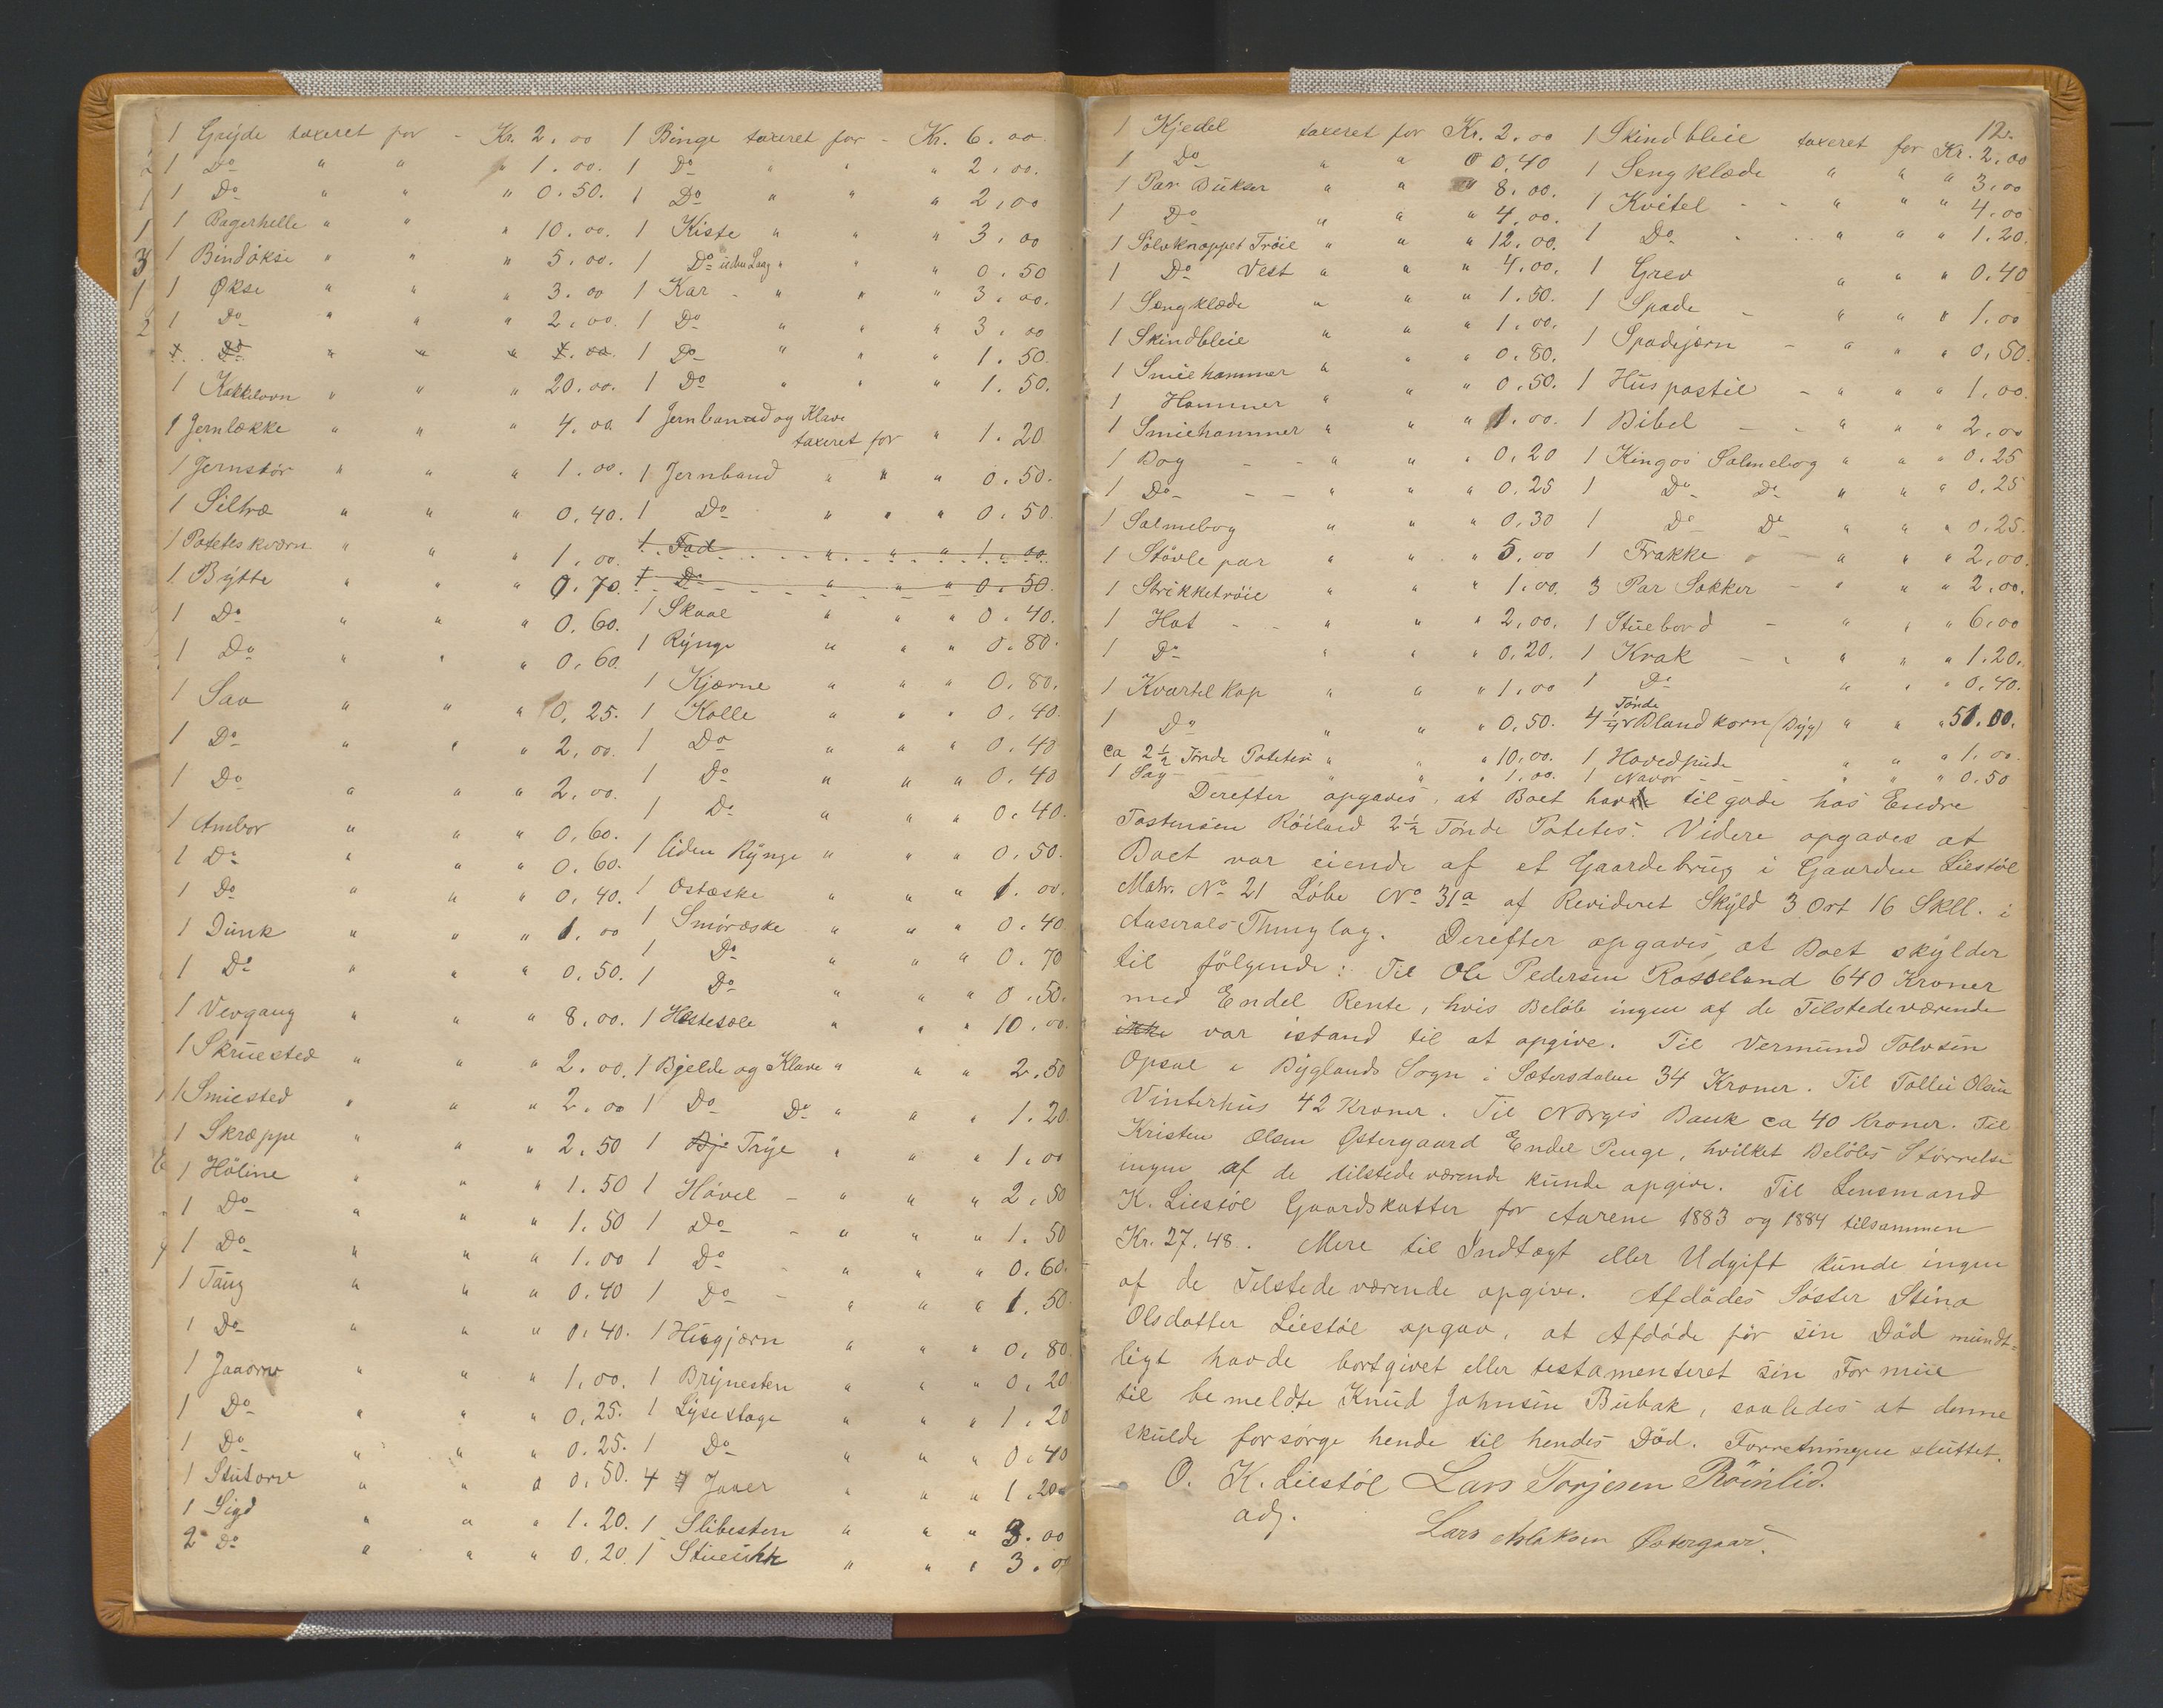 1 Gryde taxeret for - Kr. 2.00
1 Do " " " 1.00.
1 Do " " " 0.50.
1 Bagerhelle " " " 10.00.
1 Bindöksi " " " 5.00.
1 Økse " " " 3.00
1 Do " " " 2.00.
1 Do " " " 1.00.
1 Kakkelovn " " " 20.00.
1 Jernlække " " " 4.00
1 Jernstör " " " 1.00.
1 Siltræ " " " 0.40.
1 Poteteskværn " " " 1.00.
1 Bytte " " " 0.70.
1 Do " " " 0.60.
1 Do " " " 0.60.
1 Saa " " " 0.25.
1 Do " " " 2.00.
1 Do " " " 2.00.
1 Ambor " " " 0.60.
1 Do " " " 0.60.
1 Do " " " 0.40.
1 Dunk " " " 1.00
1 Do " " " 0.50.
1 Vevgang " " " 8.00.
1 Skruested " " " 2.00.
1 Smiested " " " 2.00
1 Skræppe " " " 2.50
1 Höline " " " 1.50
1 Do " " " 1.50
1 Do " " " 1.00
1 Tang " " " 0.40
1 Do " " " 0.40.
1 Jaaorv " " " 1.00.
1 Do " " " 0.25.
1 Do " " " 0.25.
1 Stutorv " " " 0.50.
1 Sigd " " " 1.20.
2 Do " " " 0.20.
1 Binge taxeret for - Kr. 6.00
1 Do " " " 2.00.
1 Do " " " 2.00
1 Kiste " " " 3.00
1 Do uden Laag " " " 0.50
1 Kar - " " " 3.00.
1 Do " " " 3.00
1 Do " " " 1.50.
1 Do " " " 1.50.
1 Jernbaand og Klave
taxeret for " 1.20
1 Jernband " " " 0.50.
1 Do " " " 0.50.
1 Fad " " " 1.00
1 Do " " " 0.50.
1 Skaal " " " 0.40.
1 Rynge " " " 0.80.
1 Kjærne " " " 0.80.
1 Kolle " " " 0.40
1 Do " " " 0.40
1 Do " " " 0.40
1 Do " " " 0.40.
1 liden Rynge " " " 0.50.
1 Ostæske " " " 1.00.
1 Smöræske " " " 0.40
1 Do " " " 0.70
1 Do " " " 0.50.
1 Hestesæle " " " 10.00.
1 Bjelde og Klave " " " 2.50
1 Do Do " " " 1.20
1 Bje Trye " " " 1.00
1 Hövel - " " " 2.50
1 Do - " " " 1.50
1 Do - " " " 0.60.
1 Do - " " " 1.50
1 Hugjern " " " 0.80
1 Brynesten " " " 0.20
1 Lysestage " " " 1.20
1 Do " " " 0.40
4 Jaaer " " " 1.20
1 Slibesten " " " 3.00
1 Stueuhr " " " 3.00
12.
1 Kjedel taxeret for Kr. 2.00
1 Do " " " 0.40
1 Par Bukser " " " 8.00.
1 Do " " " 4.00.
1 Sölvknappet Tröie " " " 12.00.
1 Do Vest " " " 4.00.
1 Sengklæde " " " 1.50.
1 Skindbleie " " " 1.00.
1 Smiehammer " " " 0.80.
1 Hammer " " " 0.50.
1 Smiehammer " " " 1.00.
1 Bog - - " " " 0.20
1 Do - - " " " 0.25
1 Salmebog " " " 0.30
1 Stövle par " " " 5.00
1 Strikketröie " " " 1.00.
1 Hat - - " " " 2.00.
1 Do " " " 0.20.
1 Kvartel Kop " " " 1.00
1 Do " " " 0.50.
ca 2½ Tönde Poteter " " " 10.00.
1 Sag - " " " 1.00.
1 Skindbleie taxeret for Kr. 2.00
1 Sengklæde " " " 3.00
1 Kvitel - - " " " 4.00
1 Do " " " 1.20.
1 Grev " " " 0.40
1 Spade - " " " 1.00
1 Spadejern - " " " 0.50.
1 Huspostil - " " " 1.00.
1 Bibel - - " " " 2.00
1 Kingos Salmebog " " " 0.25
1 Do Do " " " 0.25
1 Do Do " " " 0.25.
1 Frakke " " " 2.00.
3 Par Sokker - " " " 2.00.
1 Stuebord - " " " 6.00
1 Krak - " " " 1.20.
1 Do " " " 0.40.
4¼ Tönde Blandkorn (Byg) " " " 51.00.
1 Hovedpude " " " 1.00.
1 Navar - - " " " 0.50
Derefter opgaves, at Boet havde tilgode hos Endre
Tostensen Röiland 2½ Tönde Potetes. Videre opgaves at
Boet var eiende af et Gaardebrug i Gaarden Liestöl
Matr. No 21 Löbe No 31a af Revideret Skyld 3 Ort 16 Skll. i
Aaserals Thinglag. Derefter opgaves, at Boet skylder
til fölgende: Til Ole Pedersen Rosseland 640 Kroner
med Endel Rente, hvis Belöb ingen af de Tilstedeværende
ikke var istand til at opgive. Til Vermund Tolvsen
Opsal i Byglands Sogn i Sætersdalen 34 Kroner. Til Tollei Olsen
Vinterhus 42 Kroner. Til Norges Bank ca 40 Kroner. Til
Kristen Olsen Østergaard Endel Penge, hvilket Belöbs Störrelse
ingen af de tilstedeværende kunde opgive. Til Lensmand
K. Liestöl Gaardskatter for Aarene 1883 og 1884 tilsammen
Kr. 27,48. Mere til Indtægt eller Udgift kunde ingen
af de Tilstedeværende opgive. Afdödes Söster Stina
Olsdatter Liestöl opgav, at Afdöde för sin Död mundt=
ligt havde bortgivet eller testamenteret sin Formue
til bemeldte Knud Johnsen Bubak, saaledes at denne
skulde forsörge hende til hendes Död. Forretningen sluttet.
O. K. Liestöl Lars Torjesen Röinlid.
adj.
Lars Aslaksen Østergaar.